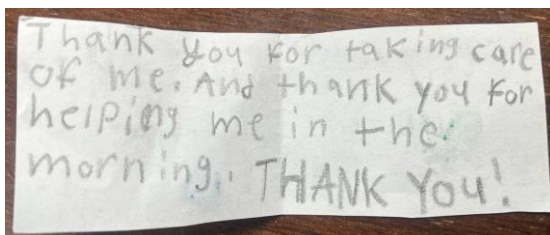 Thank you for taking care
of me. And thank you for
helping me in the
morning. THANK YOU!